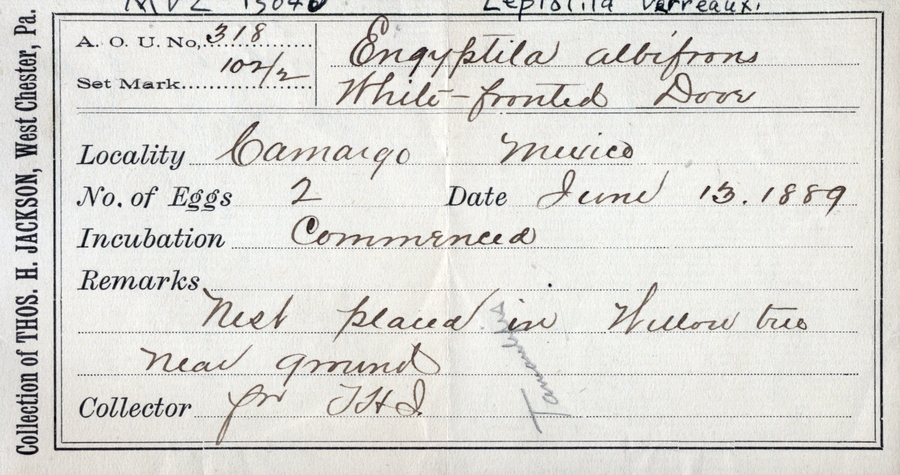 MVZ
Leptotila verreauxi
A. O. U. No. 318
Set Mark 102/2
Engyptila albifrons
White-fronted Dove
Locality Camargo Mexico
No. of Eggs 2 Date June 13. 1889
Incubation Commenced
Remarks
Nest placed in Willow tree
near ground
Collector for T H J.
Collection of THOS. H. JACKSON, West Chester, Pa.